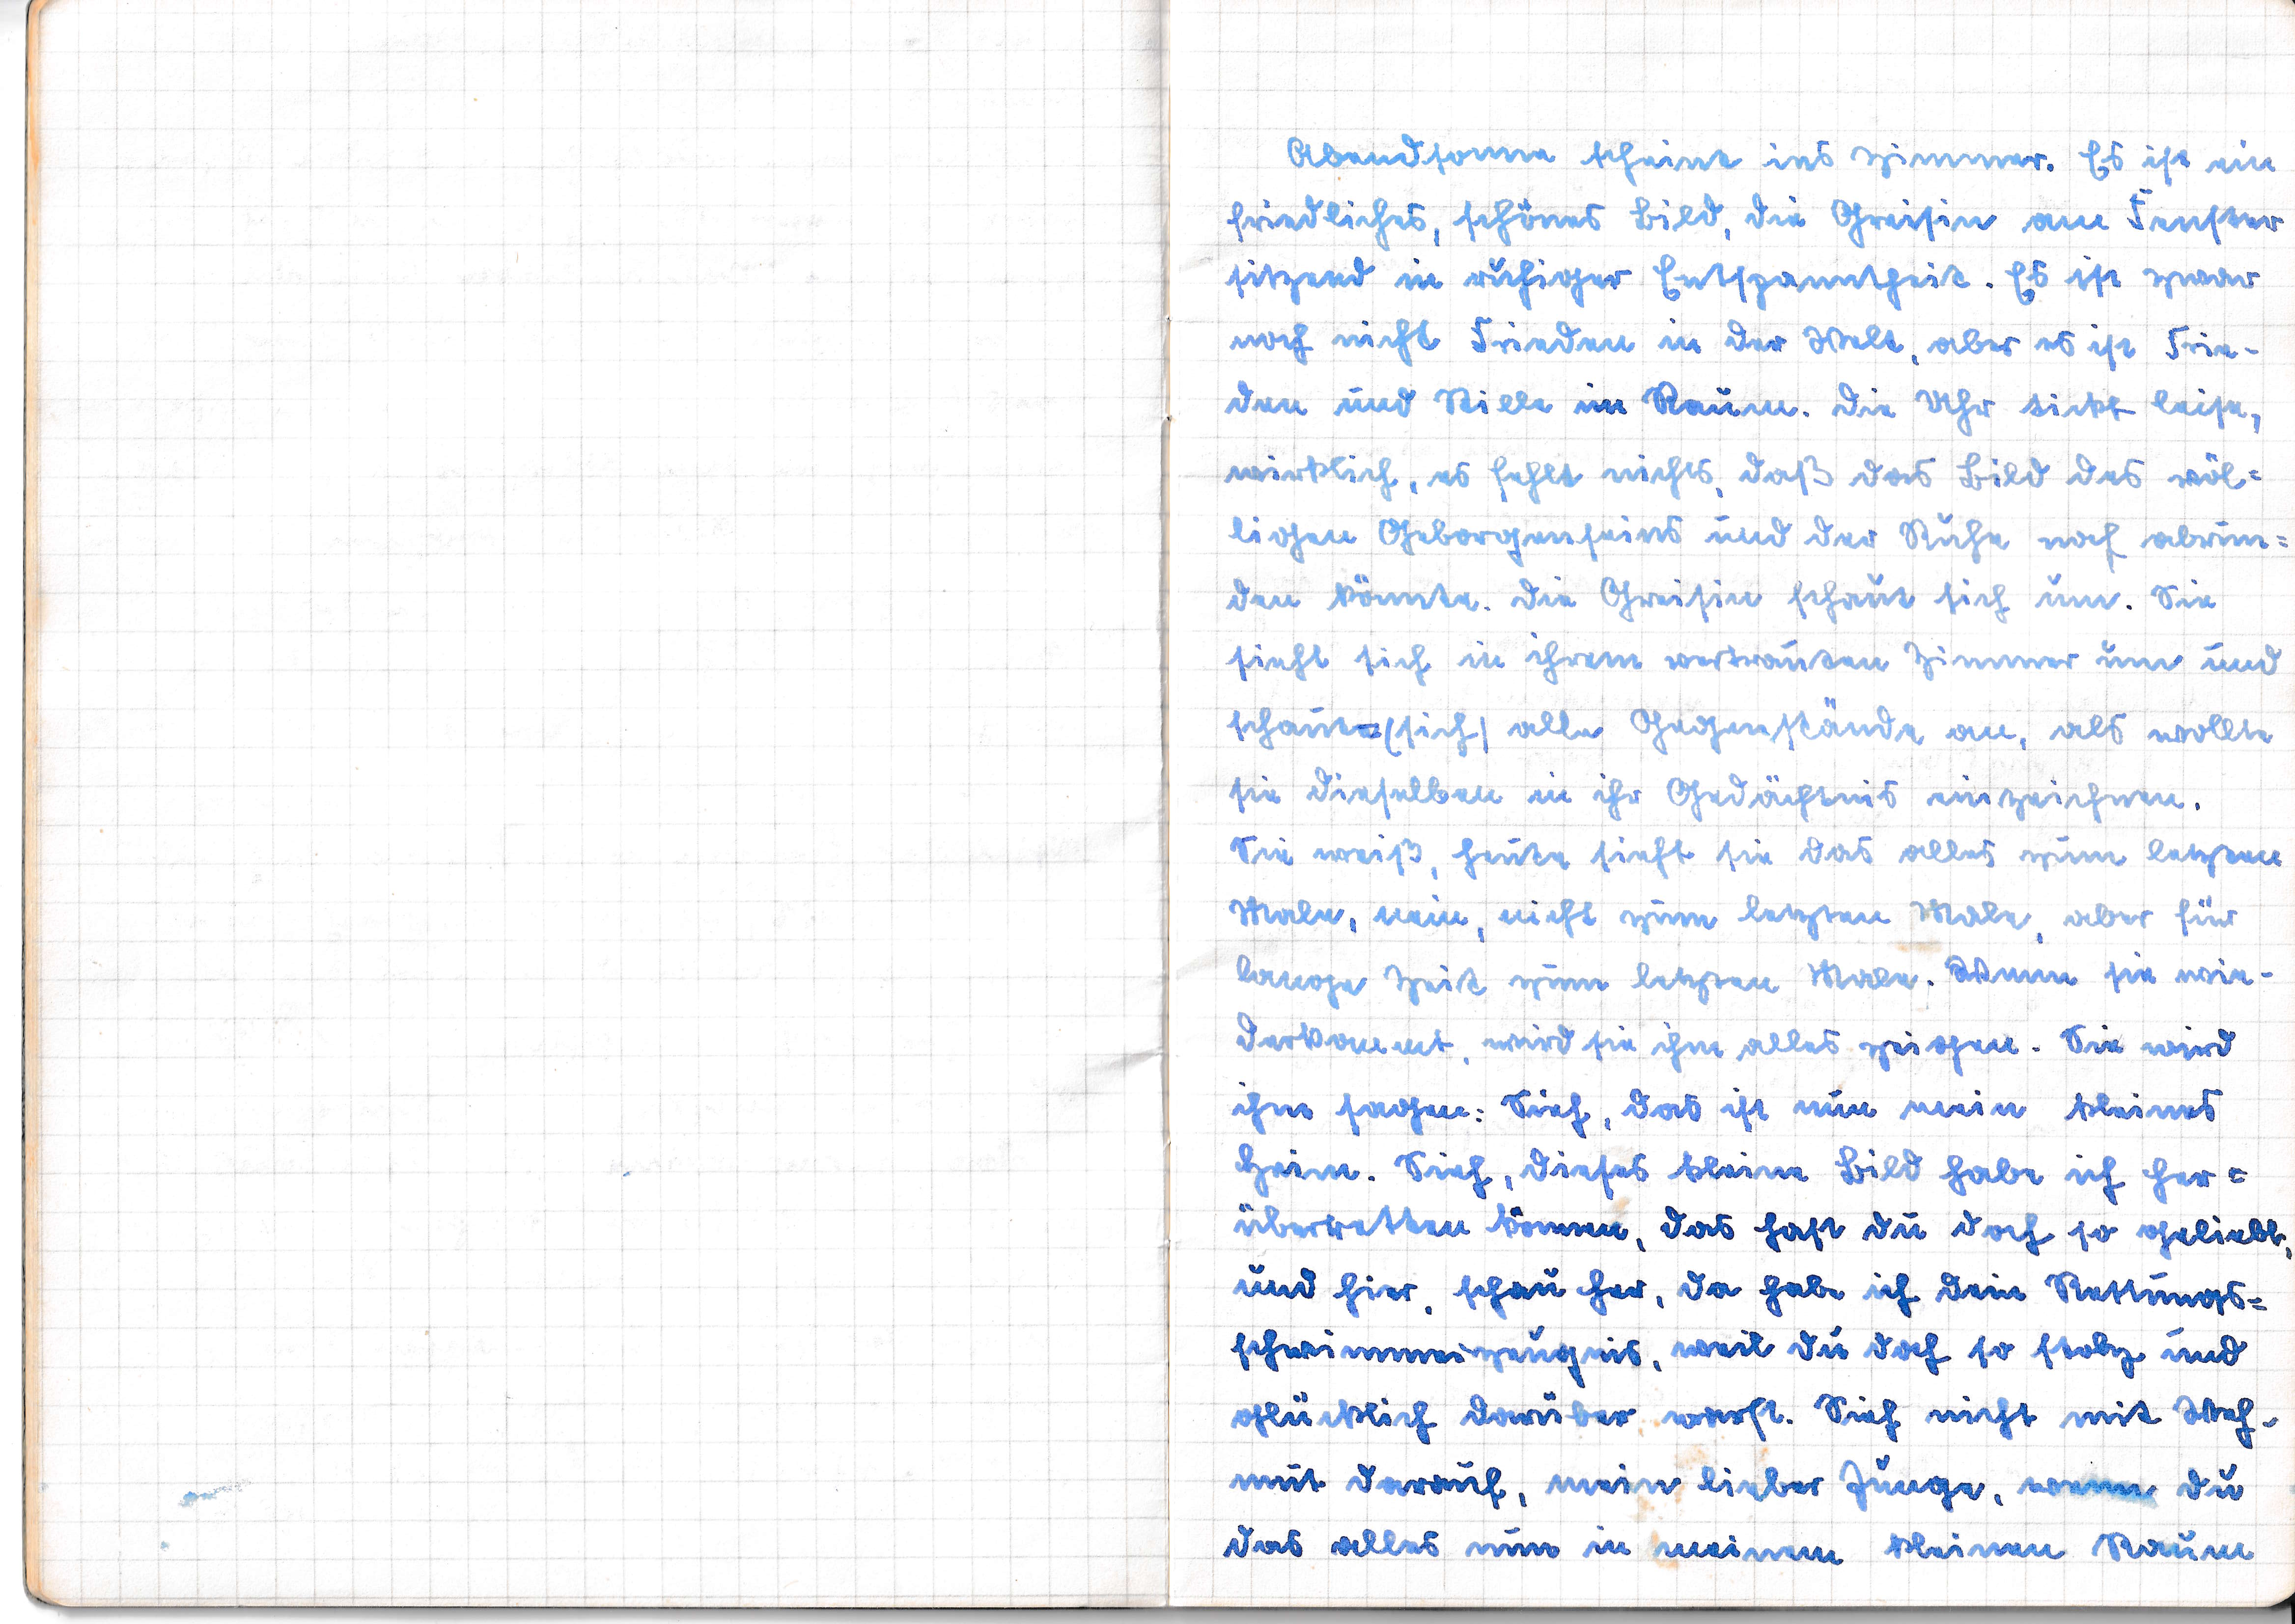 Abendsonne scheint ins Zimmer. Es ist ein
friedliches, schönes Bild, die Greisin am Fenster
sitzend in ruhiger Entspanntheit. Es ist zwar
noch nicht Frieden in der Welt, aber es ist Frie-
den und Stille im Raum. Die Uhr tickt leise,
wirklich, es fehlt nichts, daß das Bild des völ=
ligen Geborgenseins und der Ruhe noch abrun=
den könnte. Die Greisin schaut sich um. Sie
sieht sich in ihrem vertrauten Zimmer um und
schaut (sich) alle Gegenstände an, als wollte
sie dieselben in ihr Gedächtnis einzeichnen.
Sie weiß, heute sieht sie das alles zum letzten
Male, nein, nicht zum letzten Male, aber für
lange Zeit zum letzten Male. Wenn sie wie-
derkommt, wird sie ihm alles zeigen. Sie wird
ihm sagen: Sieh, das ist nun mein kleines
Heim. Sieh, dieses kleine Bild habe ich her=
überretten können, das hast du doch so geliebt,
und hier, schau her, da habe ich dein Rettungs=
schwimmerzeugnis, weil du doch so stolz und
glücklich darüber warst. Sieh nicht mit Weh-
mut darauf, mein lieber Junge, wenn du
das alles nun in meinem kleinen Raum